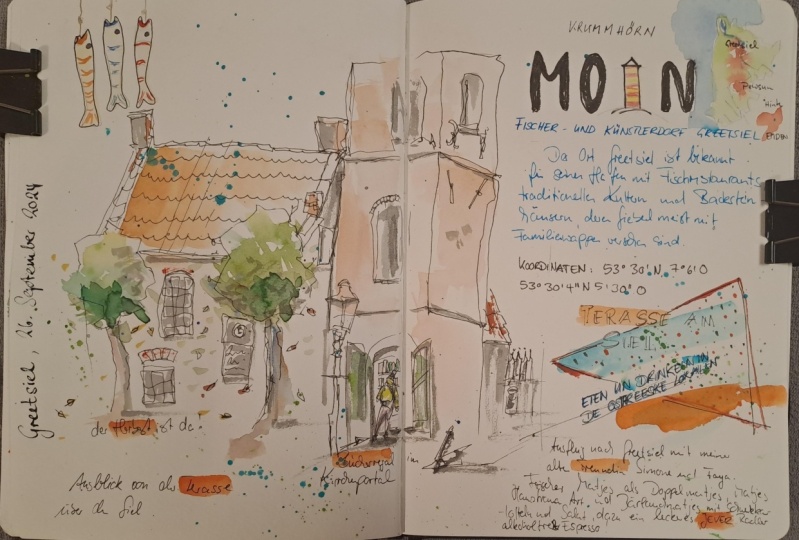 Greetsiel, 26. September 2024
der Herbst ist da
Ausblick von der Terrasse
über der Siel
Kirchenportal
im
KRUMMHÖRN
MOIN
Greetsiel
Pewsum
Hinte
EMDEN
FISCHER- UND KÜNSTLERDORF GREETSIEL
Der Ort Greetsiel ist bekannt
für seinen Hafen mit Fischrestaurants
traditionellen Kuttern und Backstein
häusern, deren Giebel meist mit
Familienwappen versehen sind.
KOORDINATEN: 53° 30' N 7° 6' O
53° 30' 4" N 5' 30" O
TERASSE AM
SIEL
ETEN UN DRINKEN IN
DE OSTFREESKE LOKALEN
Ausflug nach Greetsiel mit meiner
alten Freundin Simone und
Matjes als Doppelmatjes, Matjes
Hausfrauen Art, und mit
und Salat, dazu ein leckeres JEVER Radler
alkoholfrei Espresso